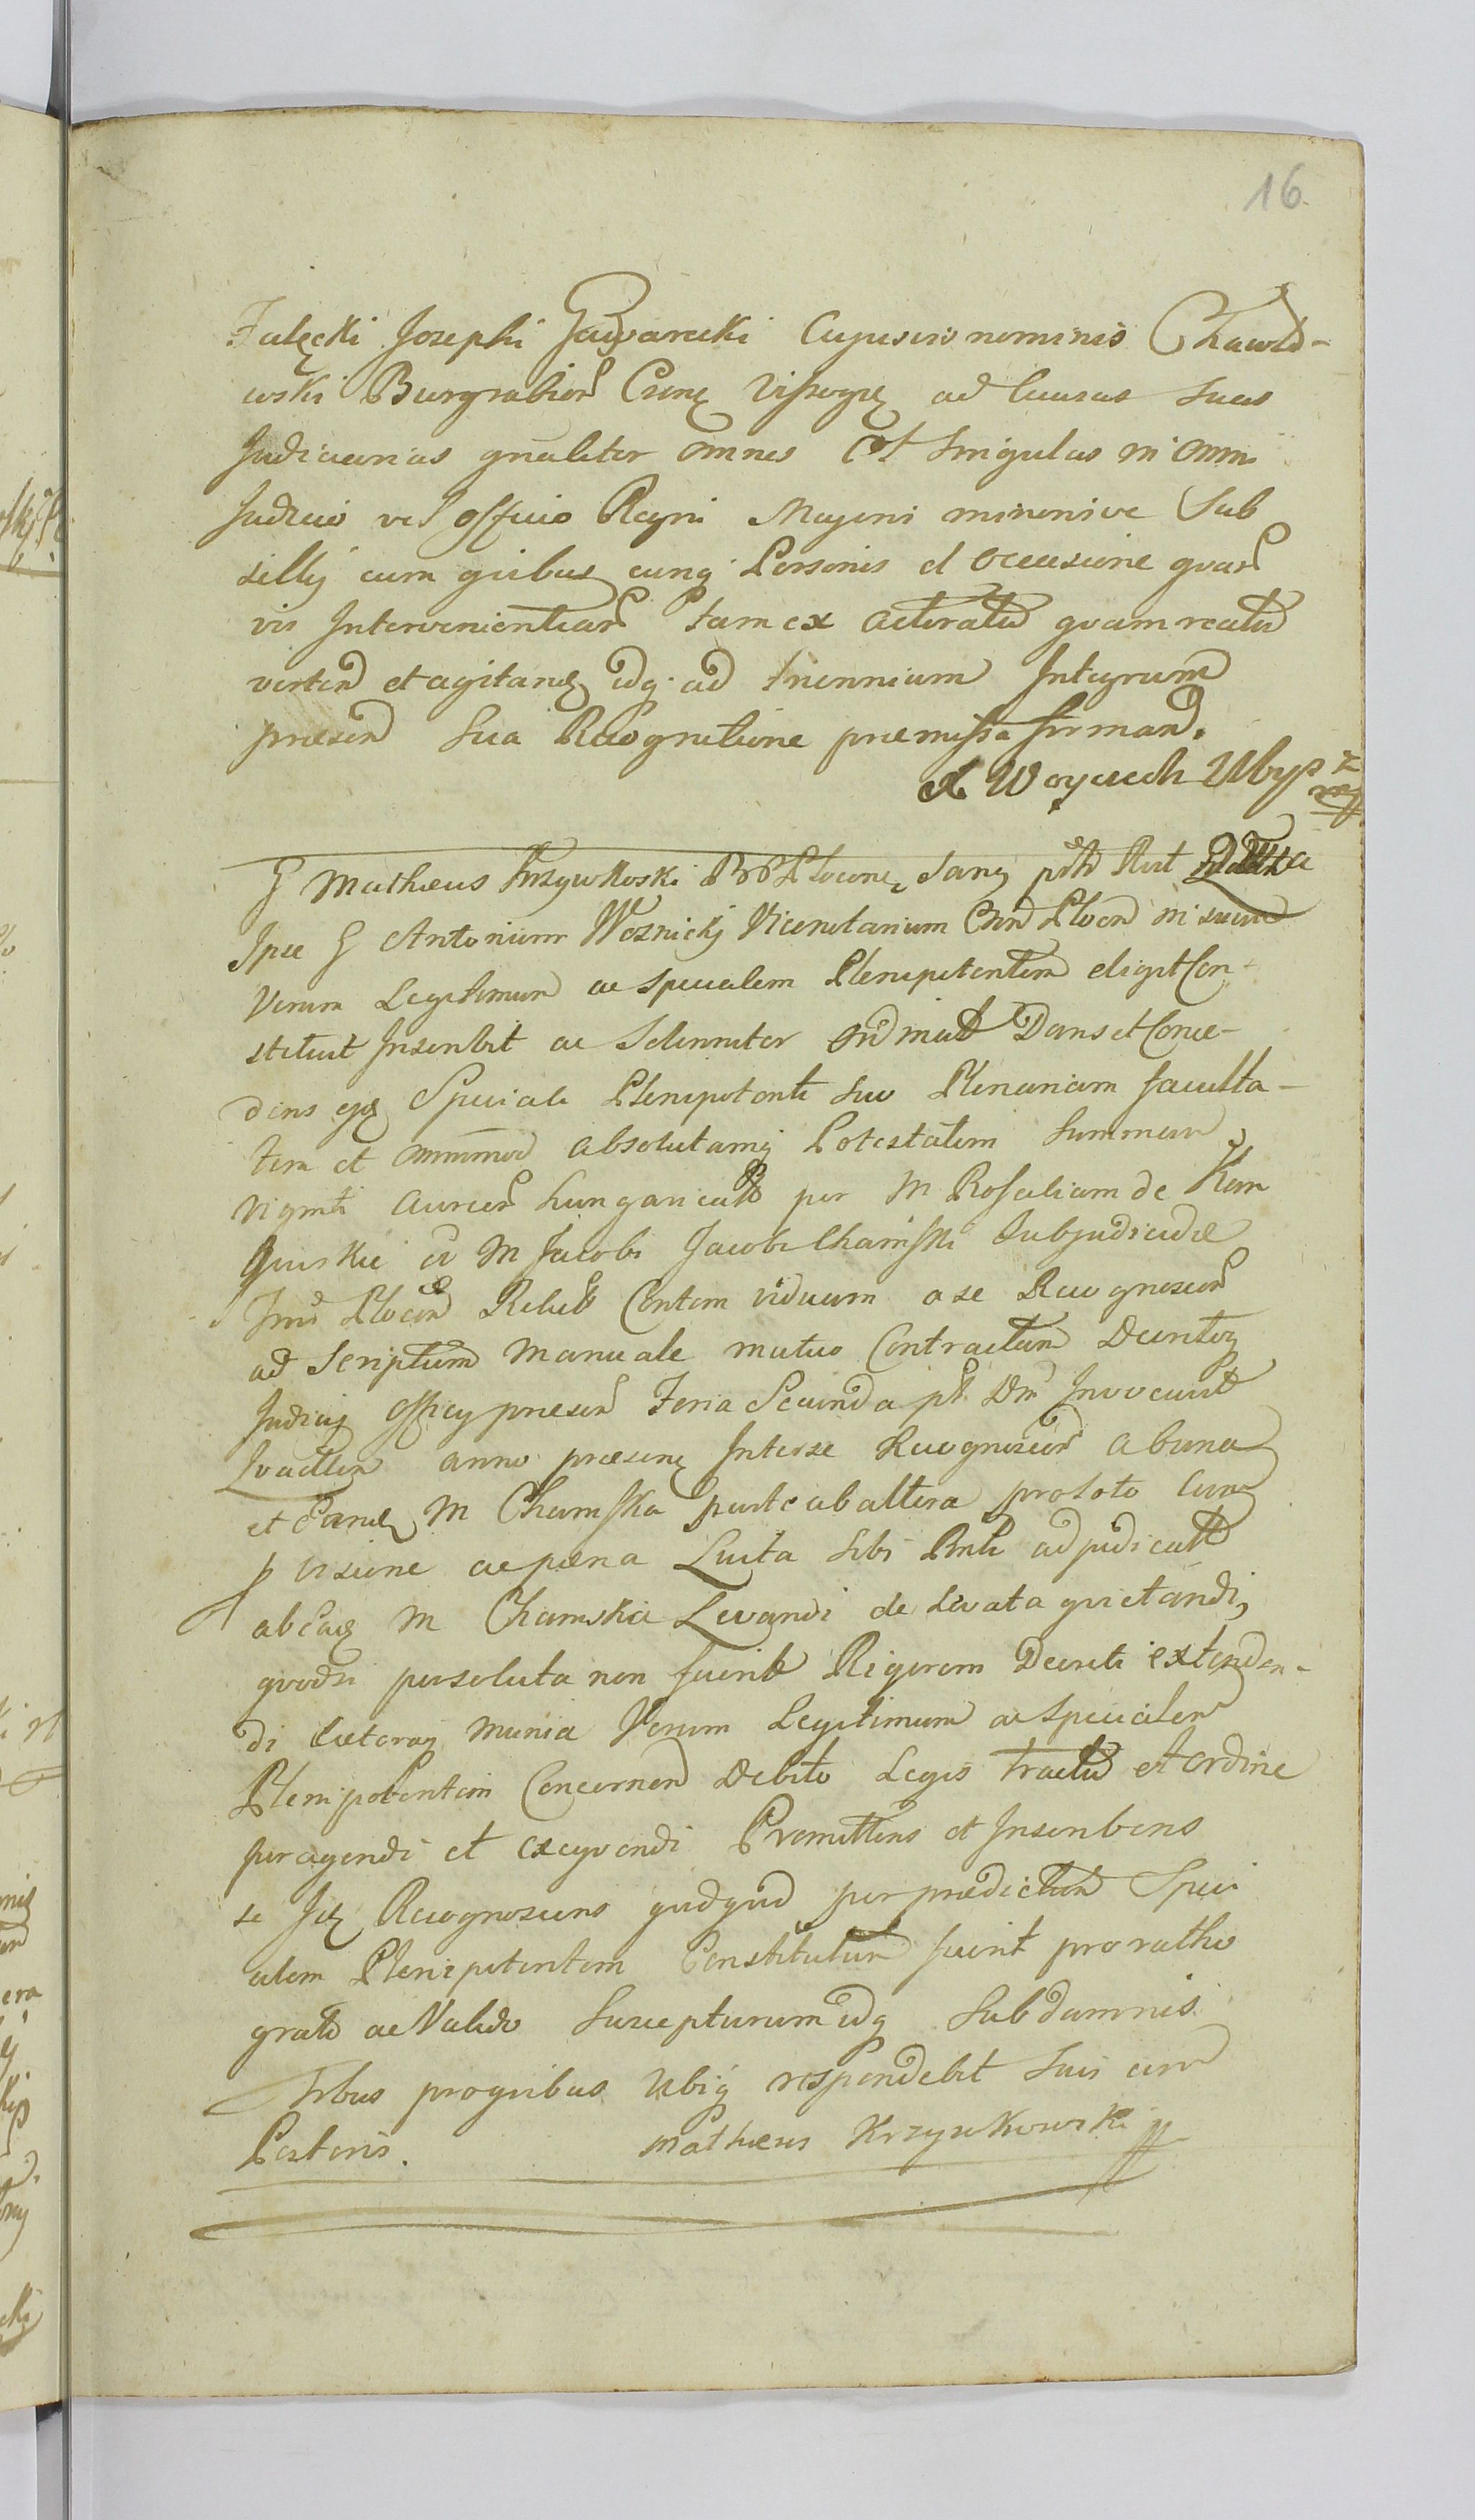 16.
Falęcki Josephi Gawarecki Cujusvis nominis Chawłd-
wski Burgrabior Csnę Vissogrę ad Causas Suas
Judiciarias gnaliter omnes Et Singulas in omni
Judicio vel officio Regni Majoni minonive Sub
sellij cum quibus cunq Personis et occasione quar
vis Intervenientiar tam ex actoratu quam reatu
verten et agitandę idq ad triennium Integrum
praesen Sua Recognitione praemissa firmand.
X Woyciech Ubysz
G Matheus Krzywkoski BP Plocenę Sanę Rlt
Ipse G Antonium Woznickij Vicenotarium Csn Plocen in suum
Verum Legitimum ac specialem Plenipotentem eligit Con-
stituit Inscribit ac Solenniter Ordinat Dans et Conce-
dens ejq Speciali Plenipotenti suo Plenariam faculta-
tem et omnimod absolutamq Potestatem Summam
viginti aureor hungaricał per M Rosaliam de Kem
M Jacobi Jacobi Chamski Subjudicid
Plocen Relict Contem viduam a se Recognoscen
ad Scriptum Manuale mutuo Contractam Decretoq
Judicij officij praesen Feria Secunda pt Dni Invocavit
anno praesenę Inter se Recognoscen ab una
et Eandę M Chamska parte ab altera prolato Cum
visione ac paena Luita sibi adjudicatt
ab Eadę M Chamska Levandi de Levata quietandi,
quodsi persoluta non fuerit Rigorem Decreti extenden-
di caeteraq munia Verum Legitimum ac specialem
Plenipotentem Concernen Debito Legis tractu et ordine
peragendi et exequendi Promittens et Inscribens
se Idę Recognoscens quidquid per praedictum Speci
alem Plenipotentem Constitutum fuerit pro ratho
grato ac Valido Suscepturum idq Sub damnis
Trbus pro quibus Ubiq respondebit Suis cum
Posteris. Matheus Krzywkowski